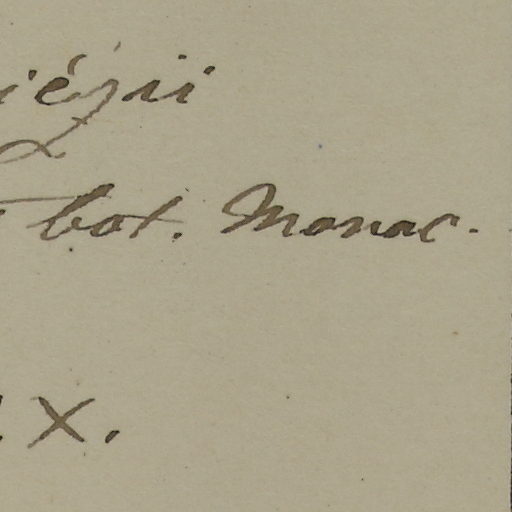 iézii
bot. Monac.
X.